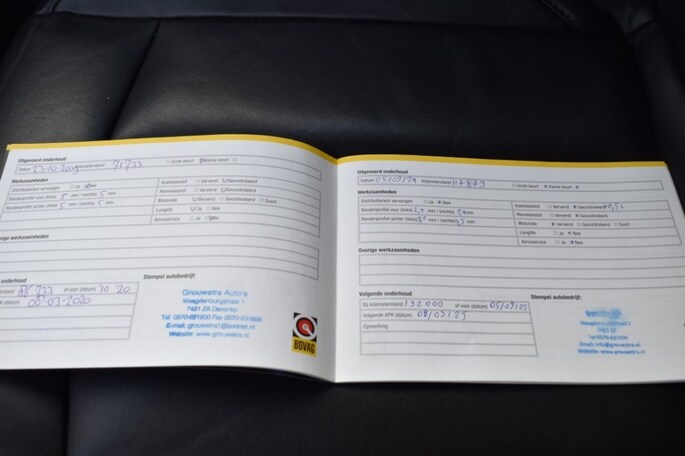 Uitgevoerd onderhoud
Datum 23-10-2019 Kilometerstand 71733 Grote beurt Kleine beurt
Werkzaamheden
Distributieriem vervangen Ja Nee
Bandenprofiel voor (links) 5 mm (rechts) 5 mm
Bandenprofiel achter (links) 5 mm (rechts) 5 mm
Koelvloeistof Ververst Gecontroleerd
Remvloeistof Ververst Gecontroleerd
Motorolie Ververst Gecontroleerd Soort
Longlife Ja Nee
Aircoservice Ja Nee
werkzaamheden
onderhoud
of voor (datum) 10 20
APK (datum) 08-03-2020
Stempel autobedrijf:
Grouwstra Auto's
Maagdenburgstraat 1
7421 ZA Deventer
Website: www.grouwstra.nl
BOVAG
Uitgevoerd onderhoud
Datum 05/09/24 Kilometerstand 117879 Grote beurt Kleine beurt
Werkzaamheden
Distributieriem vervangen Ja Nee
Bandenprofiel voor (links) mm (rechts) mm
Bandenprofiel achter (links) mm (rechts) mm
Koelvloeistof Ververst Gecontroleerd
Remvloeistof Ververst Gecontroleerd
Motorolie Ververst Gecontroleerd Soort
Longlife Ja Nee
Aircoservice Ja Nee
Overige werkzaamheden
Volgende onderhoud
Bij kilometerstand 132000 of voor (datum) 05/09/25
Volgende APK (datum) 08/03/25
Opmerking
Stempel autobedrijf:
Maagdenburgstraat 1
Tel: 0570-621930
Email: info@grouwstra.nl
Website: www.grouwstra.nl